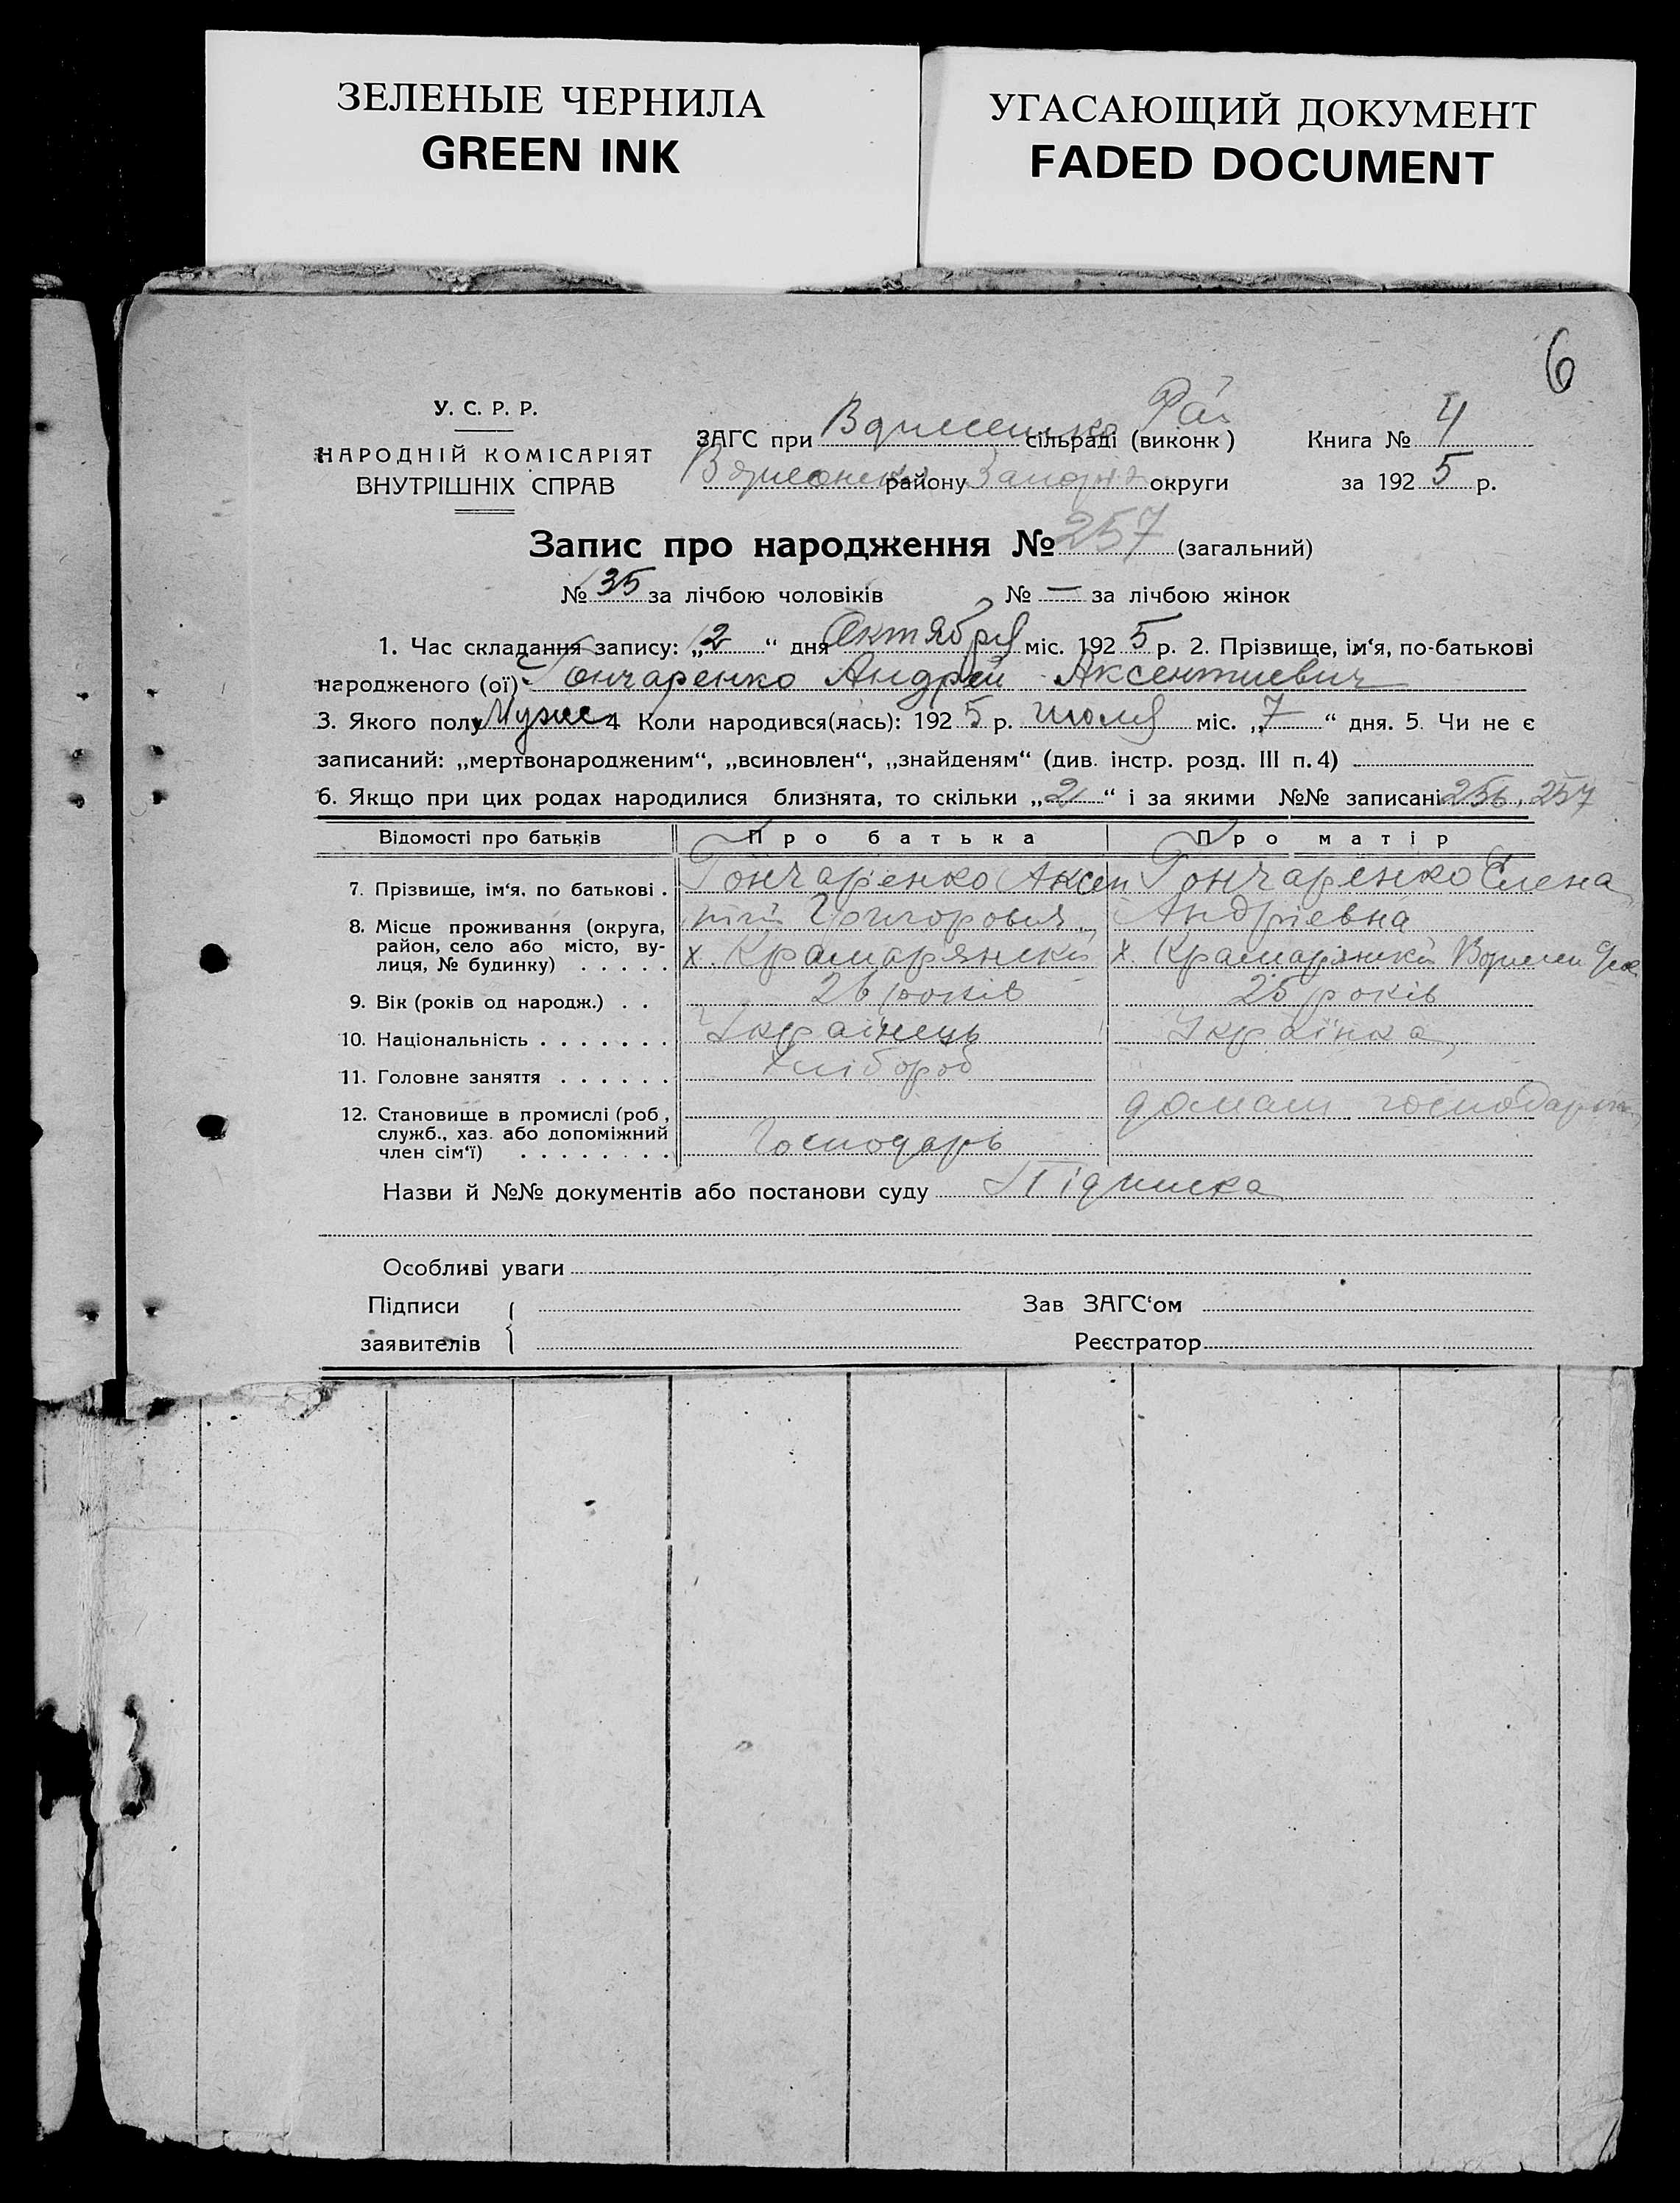 ЗЕЛЕНЫЕ ЧЕРНИЛА
GREEN INK
УГАСАЮЩИЙ ДОКУМЕНТ
FADED DOCUMENT
6
У. С. Р. Р.
НАРОДНІЙ КОМІСАРІЯТ
ВНУТРІШНІХ СПРАВ
ЗАГС при сільраді (виконк)
району округи
Книга № 4
за 1925 р.
Запис про народження № 257 (загальний)
№ 35 за лічбою чоловіків № — за лічбою жінок
1. Час складання запису: „2“ дня Октября міс. 1925 р. 2. Прізвище, ім‘я, по-батькові
народженого (ої) Гончаренко Андрей Аксентиевич
3. Якого полу Мужс 4 Коли народився(лась): 1925 р. июля міс. „7“ дня. 5. Чи не є
записаний: „мертвонародженим“, „всиновлен“, „знайденям“ (див. інстр. розд. III п. 4)
6. Якщо при цих родах народилися близнята, то скільки „2“ і за якими №№ записані 256, 257
Відомості про батьків Про батька Про матір
7. Прізвище, ім‘я, по батькові . Гончаренко Аксен Гончаренко Єлена
тій Григорович Андріевна
8. Місце проживання (округа,
район, село або місто, ву-
лиця, № будинку) . . . . . х. Крамарянский х. Крамарянский
9. Вік (років од народж.) . . 26 років 25 років
10. Національність . . . . . . . Українець Українка
11. Головне заняття . . . . . . Хлібороб
12. Становище в промислі (роб ,
служб., хаз. або допоміжний
член сім‘ї) . . . . . . . . Господарь домаш господар
Назви й №№ документів або постанови суду Підписка
Особливі уваги
Підписи
заявителів
Зав ЗАГС‘ом
Реєстратор